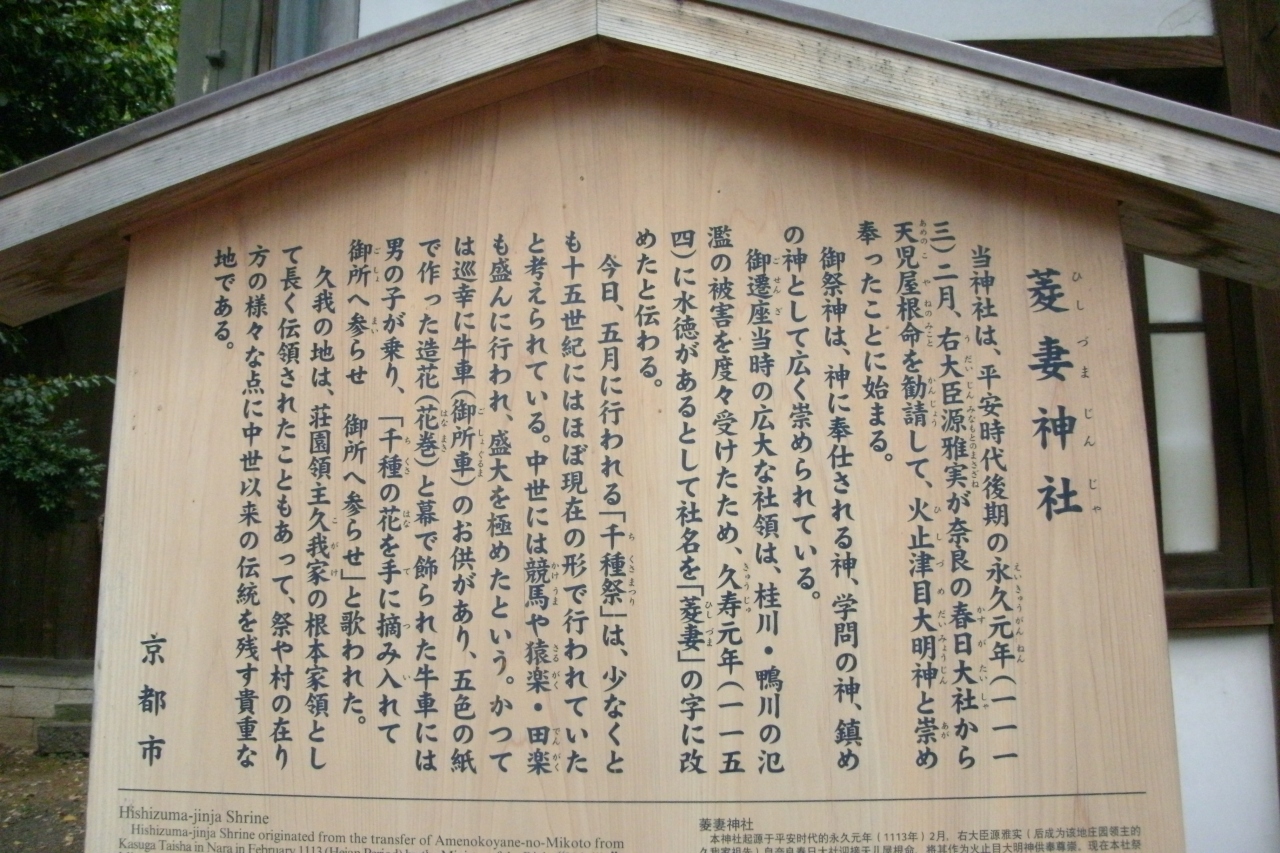 菱妻神社
ひしづまじんじゃ
当神社は、平安時代後期の永久元年(一一一
三)二月、右大臣源雅実が奈良の春日大社から
天児屋根命を勧請して、火止津目大明神と崇め
奉ったことに始まる。
御祭神は、神に奉仕される神、学問の神、鎮め
の神として広く崇められている。
御遷座当時の広大な社領は、桂川・鴨川の氾
濫の被害を度々受けたため、久寿元年(一一五
四)に水徳があるとして社名を「菱妻」の字に改
めたと伝わる。
今日、五月に行われる「千種祭」は、少なくと
も十五世紀にはほぼ現在の形で行われていた
と考えられている。中世には競馬や猿楽・田楽
も盛んに行われ、盛大を極めたという。かつて
は巡幸に牛車(御所車)のお供があり、五色の紙
で作った造花(花巻)と幕で飾られた牛車には
男の子が乗り、「千種の花を手に摘み入れて
御所へ参らせ 御所へ参らせ」と歌われた。
久我の地は、荘園領主久我家の根本家領とし
て長く伝領されたこともあって、祭や村の在り
方の様々な点に中世以来の伝統を残す貴重な
地である。
京都市
Hishizuma-jinja Shrine
Hishizuma-jinja Shrine originated from the transfer of Amenokoyane-no-Mikoto from
Kasuga Taisha in Nara in February 1113 (Heian Period) by the
菱妻神社
本神社起源于平安时代的永久元年(1113年)2月,右大臣源雅实(后成为该地庄园领主的
久我家祖先)自奈良春日大社迎接天儿屋根命,将其作为火止目大明神供奉尊崇。现在本社祭